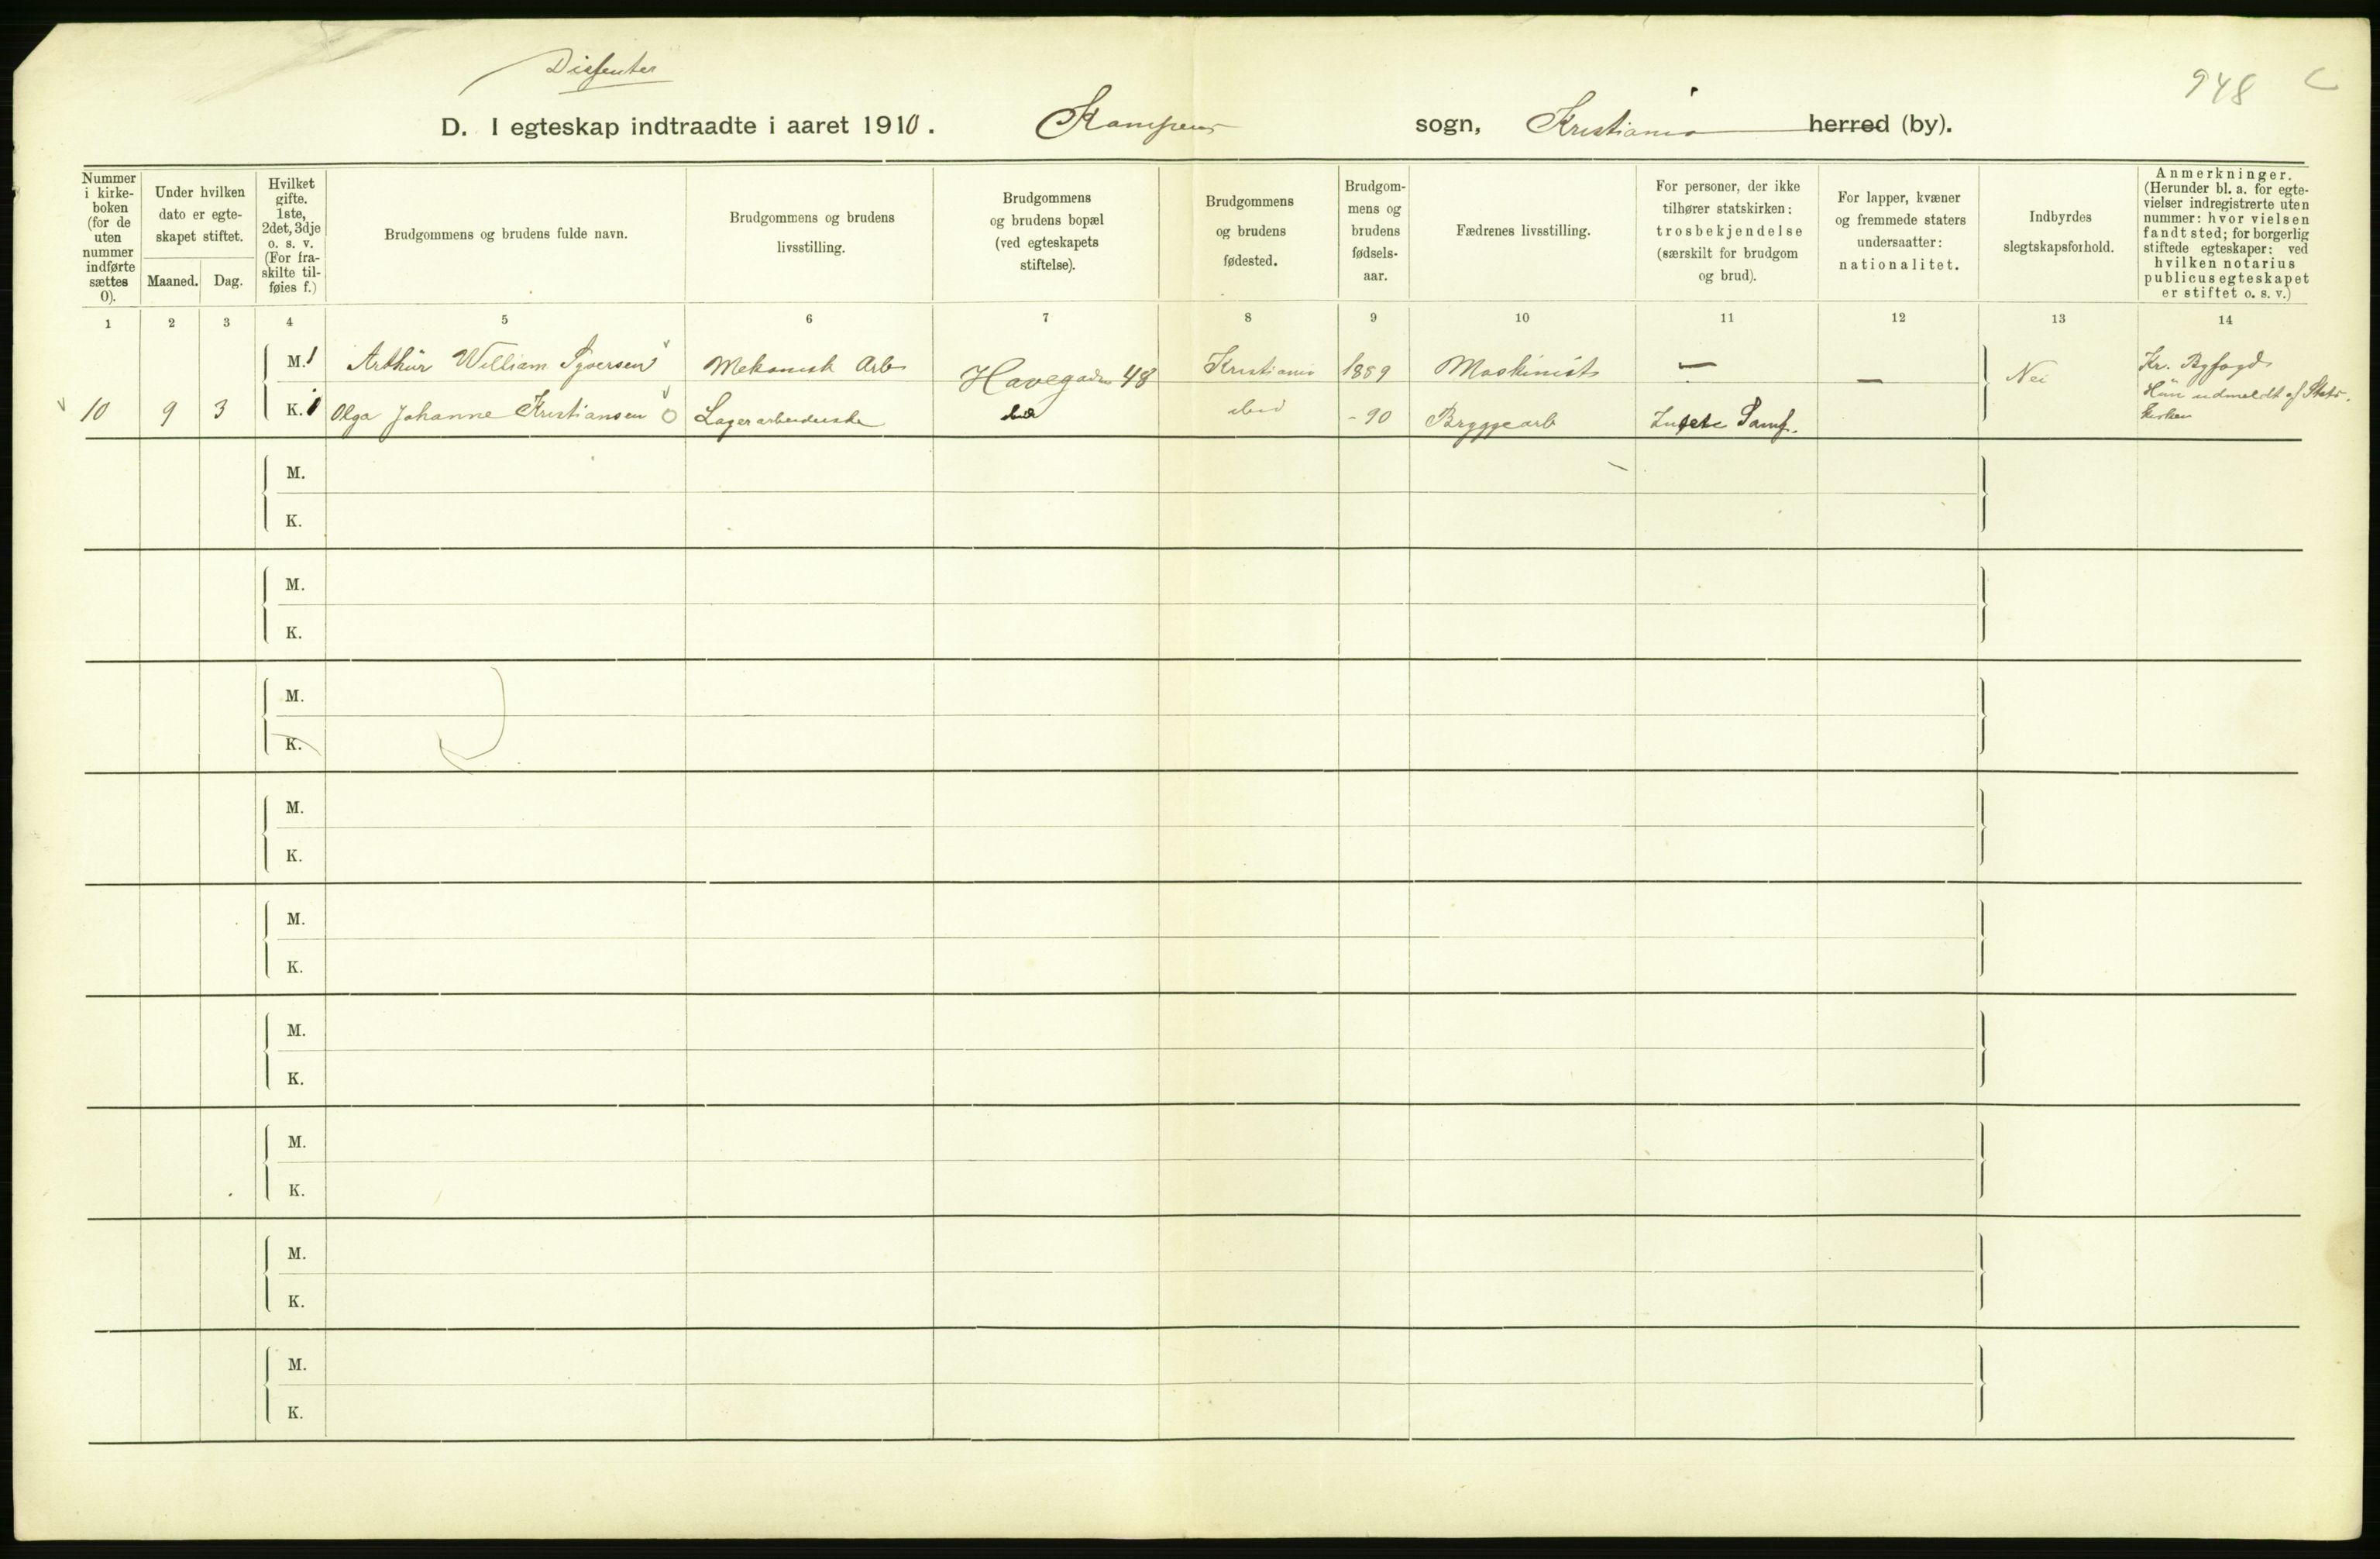 Dissenter
948
D. I egteskap indtraadte i aaret 1910. Kampens sogn, Kristiania herred (by).
Nummer i kirke-boken (for de uten nummer indførte sættes 0).
Under hvilken dato er egte-skapet stiftet.
Maaned. Dag.
Hvilket gifte. 1ste, 2det, 3dje o. s. v. (For fra-skilte til-føies f.)
Brudgommens og brudens fulde navn.
Brudgommens og brudens livsstilling.
Brudgommens og brudens bopæl (ved egteskapets stiftelse).
Brudgommens og brudens fødested.
Brudgom-mens og brudens fødsels-aar.
Fædrenes livsstilling.
For personer, der ikke tilhører statskirken: trosbekjendelse (særskilt for brudgom og brud).
For lapper, kvæner og fremmede staters undersaatter: nationalitet.
Indbyrdes slegtskapsforhold.
Anmerkninger. (Herunder bl. a. for egte-vielser indregistrerte uten nummer: hvor vielsen fandt sted; for borgerlig stiftede egteskaper: ved hvilken notarius publicus egteskapet er stiftet o. s. v.)
1 2 3 4 5 6 7 8 9 10 11 12 13 14
M. 1 Arthur William Syversen Mekanisk Arb Havegaden 48 Kristiania 1889 Maskinist — — Nei Kr. Byfogd
10 9 3 K. 1 Olga Johanne Kristiansen Lagerarbeiderske ibid -90 Bryggearb Intete Samf. Hun udmeldt af Stats-
kirken
M.
K.
M.
K.
M.
K.
M.
K.
M.
K.
M.
K.
M.
K.
M.
K.
M.
K.